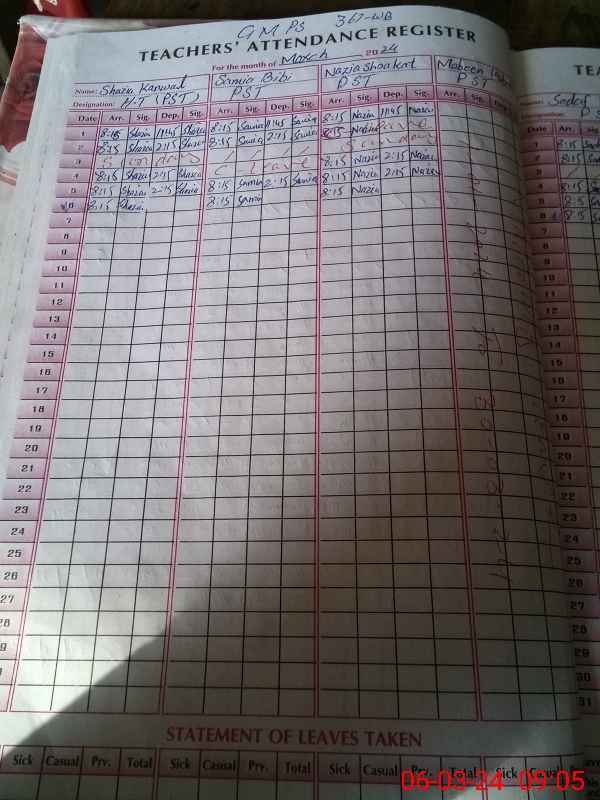 GMPS 367-WB
TEACHERS' ATTENDANCE REGISTER
For the month of March 2024
Name: Shazia Kanwal Samia Bibi Nazia Shoakat Mobeen
Designation: H-T (PST) PST PST PST
Date Arr. Sig. Dep. Sig. Arr. Sig. Dep. Sig. Arr. Sig. Dep. Sig. Arr. Sig.
1 8:15 Shazia 11:45 Shazia 8:15 Samia 11:45 Samia 8:15 Nazia 11:45 Nazia
2 8:15 Shazia 2:15 Shazia 8:15 Samia 2:15 Samia 8:15 Nazia
3 Sunday
4 8:15 Shazia 2:15 Shazia Leave 8:15 Nazia 2:15 Nazia
5 8:15 Shazia 2:15 Shazia 8:15 Samia 2:15 Samia 8:15 Nazia 2:15 Nazia
6 8:15 Shazia 8:15 Samia 8:15 Nazia
7
8
9
10
11
12
13
14
15
16
17
18
19
20
21
22
23
24
25
26
27
28
STATEMENT OF LEAVES TAKEN
Sick Casual Prv. Total Sick Casual Prv. Total Sick Casual Prv. Total Sick Casual
TEA
Sadaf
Date Arr. Sig.
1 8:15
2 8:15
3
4 8:15
5 8:15
6 8:15
7
8
9
10
11
12
13
14
15
16
17
18
19
20
21
22
23
24
25
26
27
28
29
30
31
06-03-24 09:05